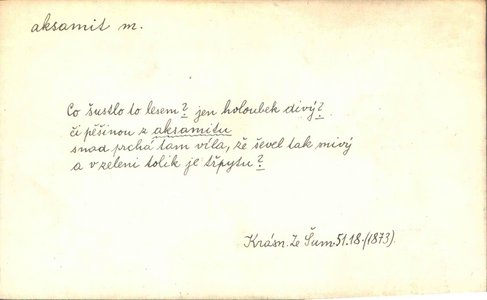 aksamit m.
Co šustlo to lesem? jen holoubek divý?
či pěšinou z aksamitu
snad prchá tam víla, že ševel tak mivý
a v zeleni tolik je třpytu?
Krásn. Ze Šum. 51.18. (1873).